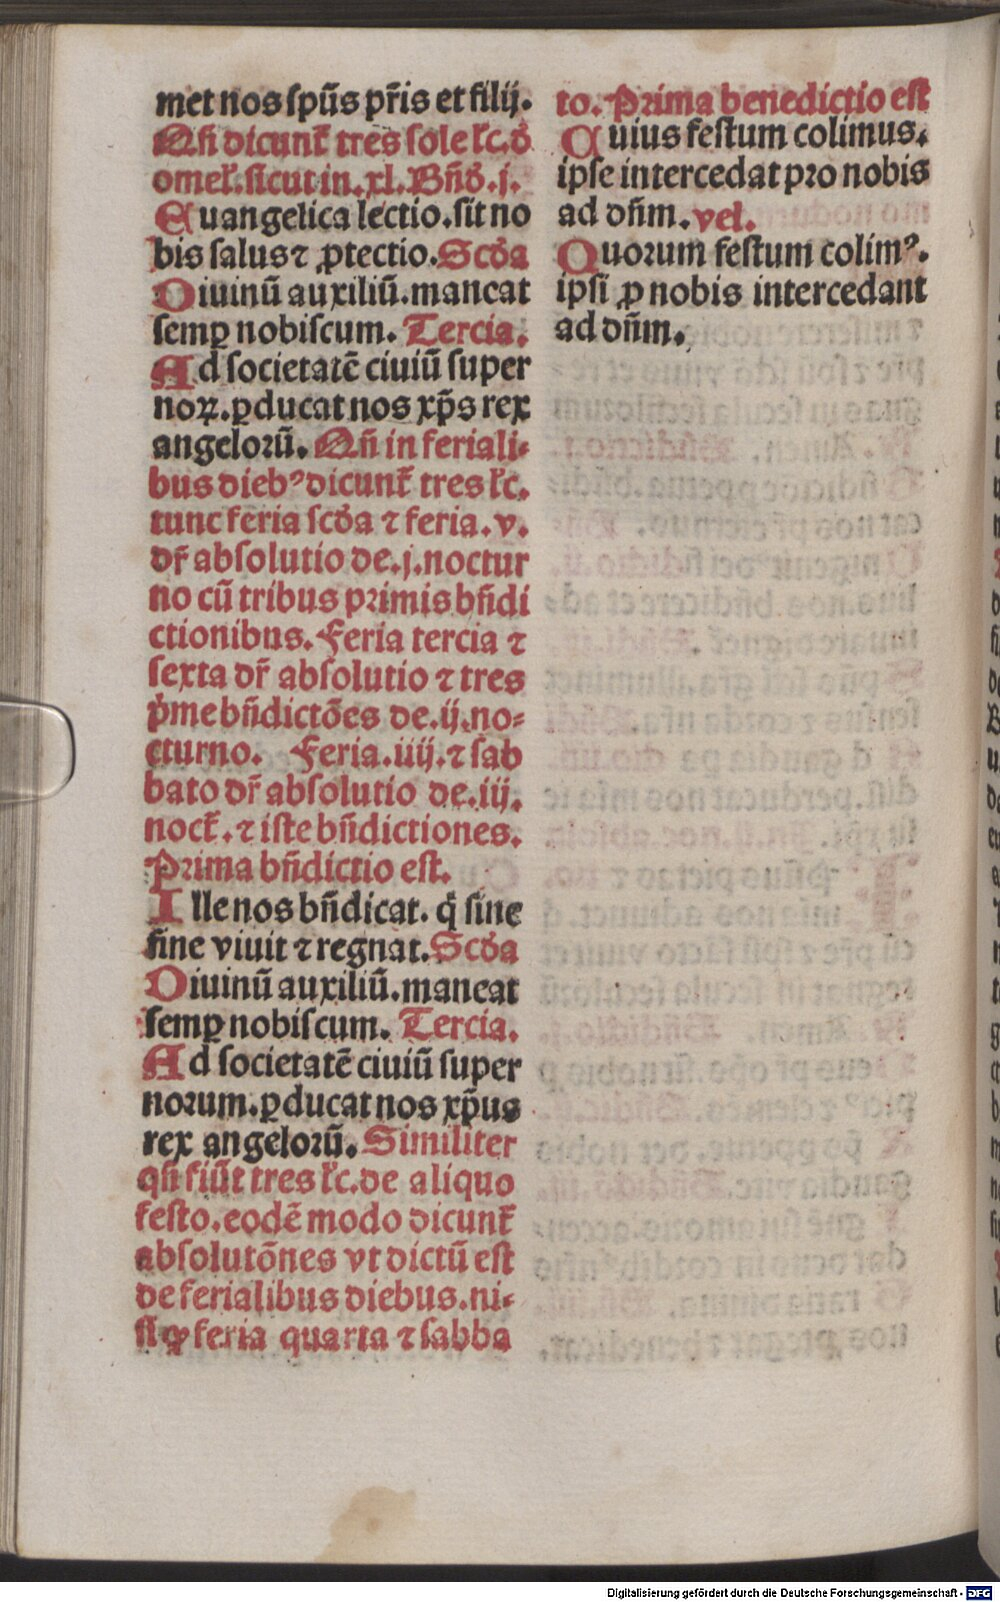 met nos spūs pr̄is et filij.
Qn̄ dicunt̄ tres sole lc̄. ō
omel̄. sicut in. xl. Bn̄ō. j.
Euangelica lectio. sit no
bis salus ⁊ ꝓtectio. Scōa
Diuinū auxiliū. maneat
semꝑ nobiscum. Tercia.
Ad societatē ciuiū super
noꝝ. ꝑducat nos xp̄s rex
angeloꝛū. Qn̄ in feriali⸗
bus dieb⁹ dicunt̄ tres lc̄.
tunc feria scōa ⁊ feria. v.
dr̄ absolutio de. j. noctur
no cū tribus pꝛimis bn̄di
ctionibus. Feria tercia ⁊
sexta dr̄ absolutio ⁊ tres
p̄me bn̄dictōes de. ij. no⸗
cturno. Feria. iiij. ⁊ sab
bato dr̄ absolutio de. iij.
noct̄. ⁊ iste bn̄dictiones.
Pꝛima bn̄dictio est.
Ille nos bn̄dicat. q̄ sine
fine viuit ⁊ regnat. Scōa
Diuinū auxiliū. maneat
semꝑ nobiscum. Tercia.
Ad societatē ciuiū super
noꝛum. ꝑducat nos xp̄us
rex angeloꝛū. Similiter
qn̄ fiūt tres lc̄. de aliquo
festo. eodē modo dicunt̄
absolutōnes vt dictū est
de ferialibus diebus. ni⸗
si ꝙ feria quarta ⁊ sabba
to. Pꝛima benedictio est
Cuius festum colimus.
ipse intercedat pꝛo nobis
ad dn̄m. vel.
Quoꝛum festum colim⁹.
ipsi ꝓ nobis intercedant
ad dn̄m.
Digitalisierung gefördert durch die Deutsche Forschungsgemeinschaft - DFG